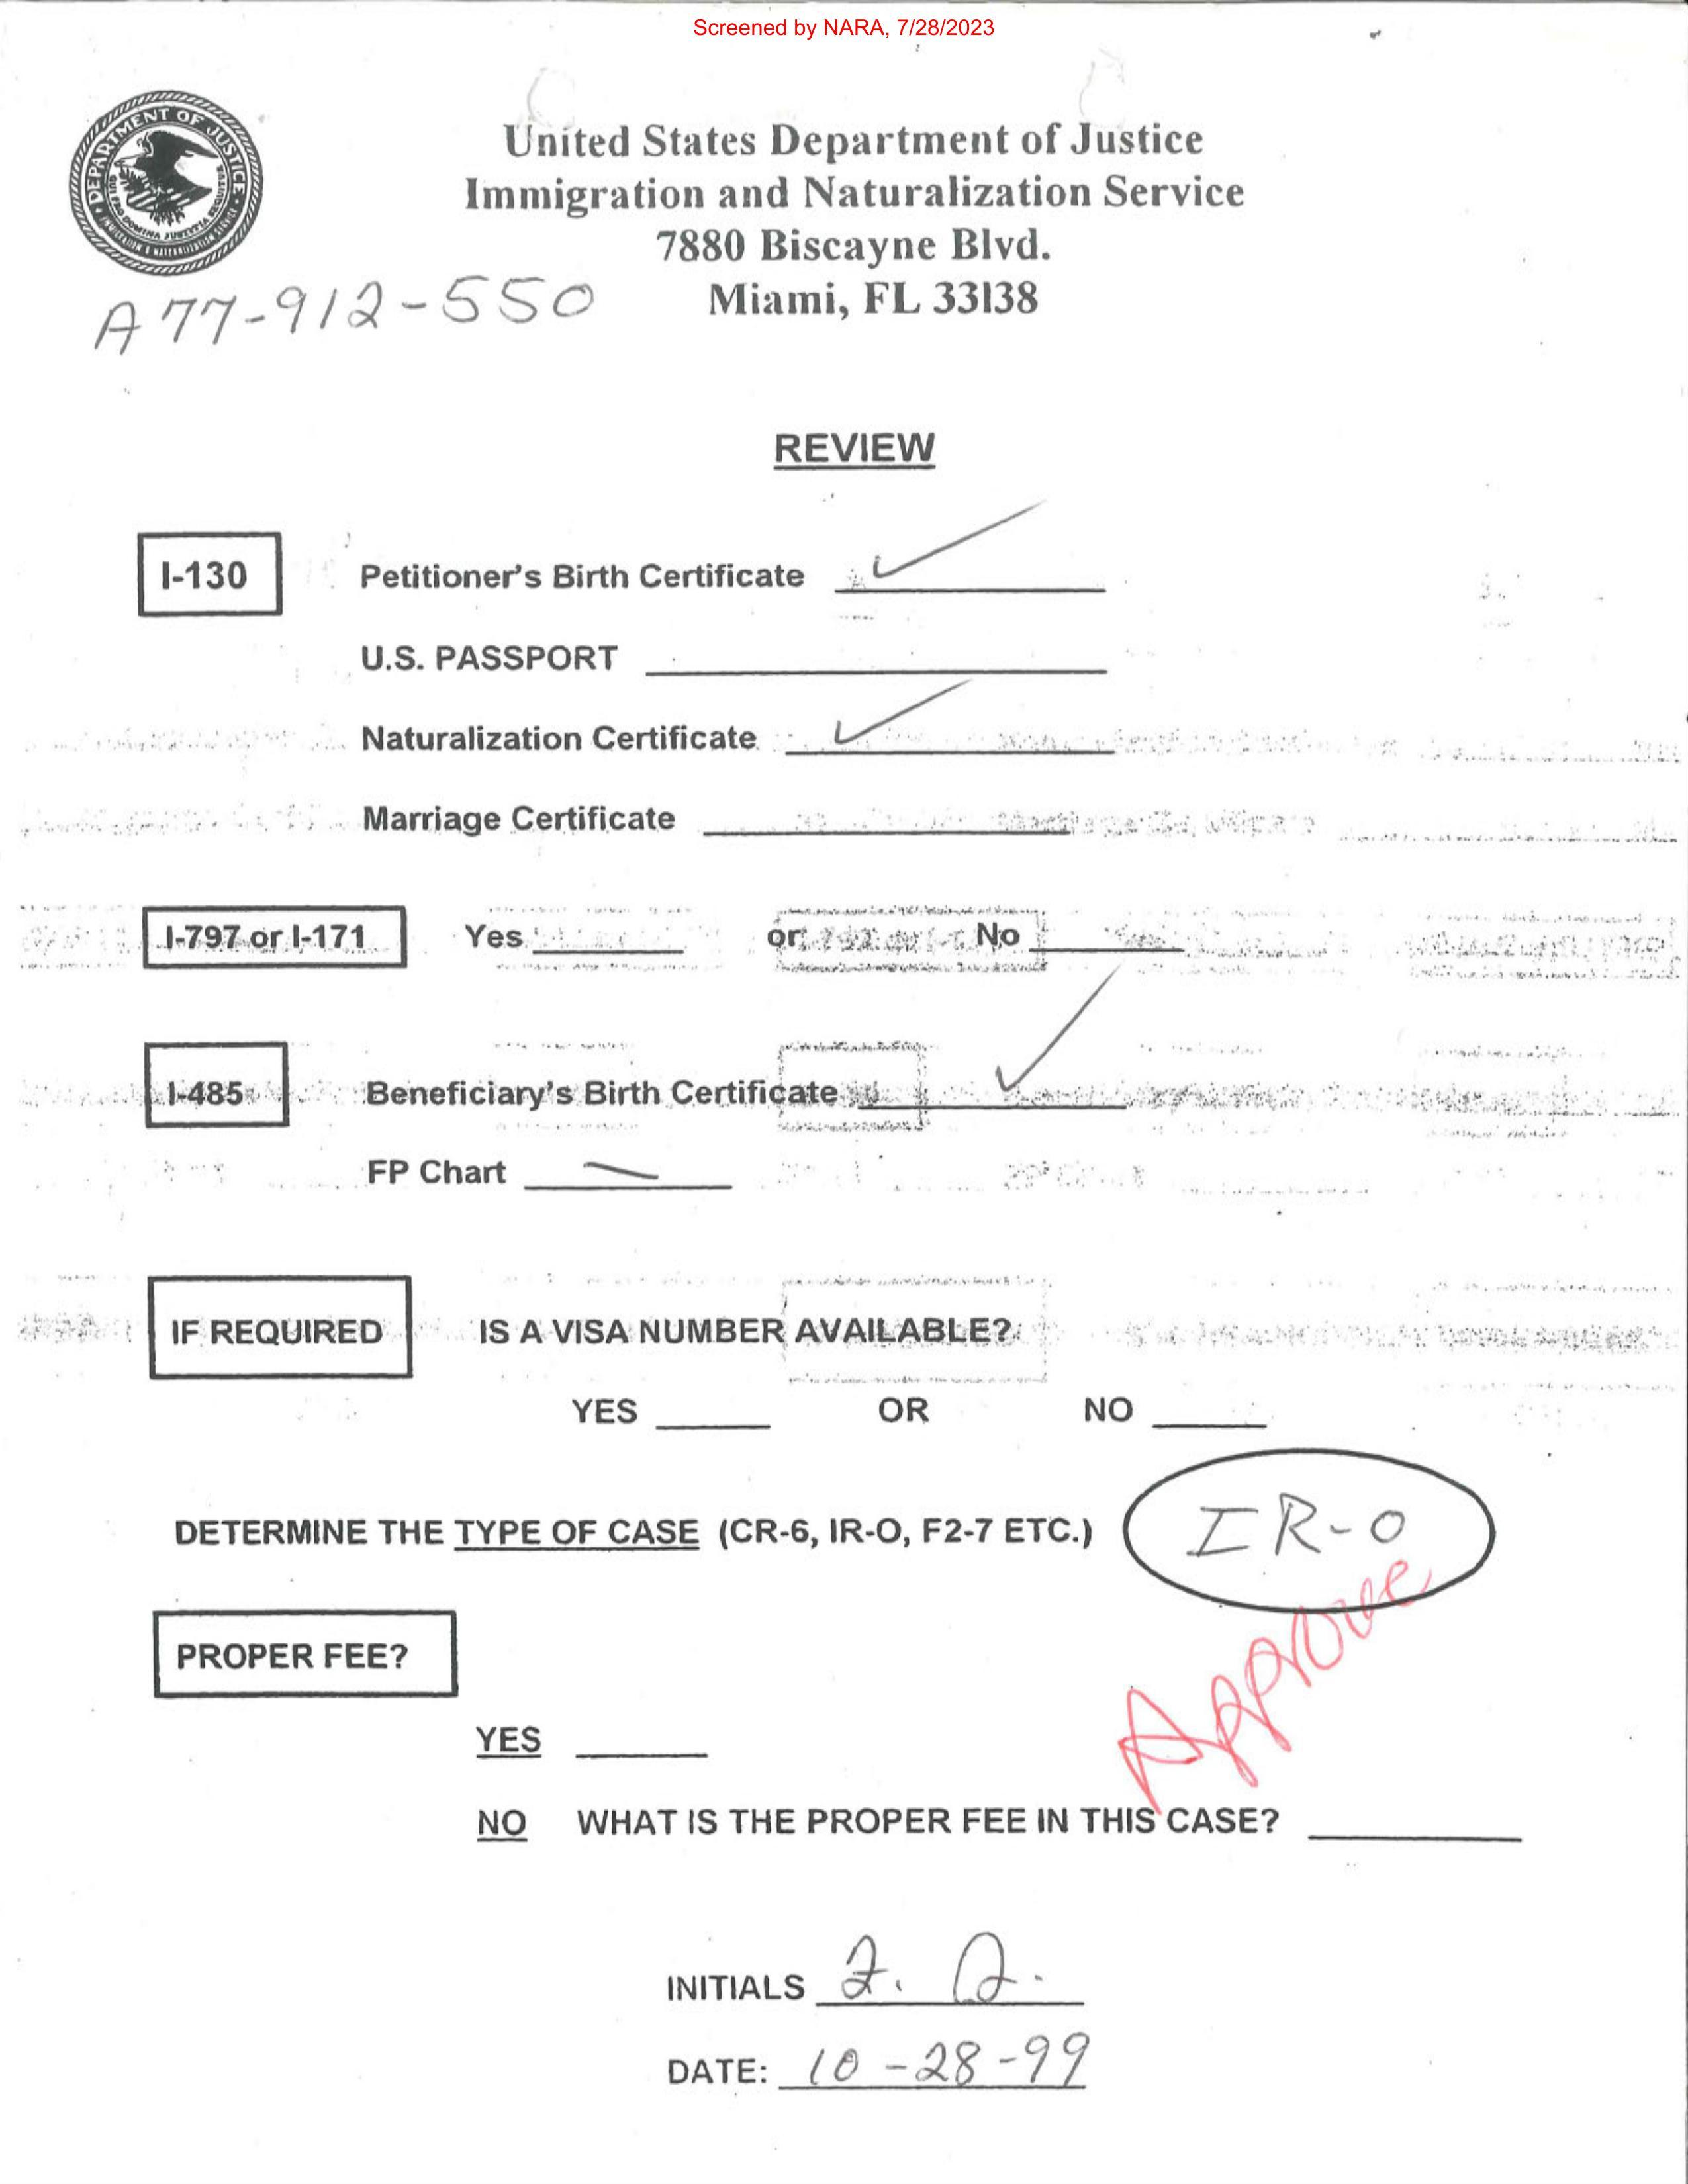 Screened by NARA, 7/28/2023
DEPARTMENT OF JUSTICE
QUI PRO DOMINA JUSTITIA SEQUITUR
IMMIGRATION & NATURALIZATION SERVICE
United States Department of Justice
Immigration and Naturalization Service
7880 Biscayne Blvd.
Miami, FL 33138
A77-912-550
REVIEW
I-130 Petitioner's Birth Certificate ✓
U.S. PASSPORT
Naturalization Certificate ✓
Marriage Certificate
I-797 or I-171 Yes or No
I-485 Beneficiary's Birth Certificate ✓
FP Chart
IF REQUIRED IS A VISA NUMBER AVAILABLE?
YES OR NO
DETERMINE THE TYPE OF CASE (CR-6, IR-O, F2-7 ETC.) IR-O
Approve
PROPER FEE?
YES
NO WHAT IS THE PROPER FEE IN THIS CASE?
INITIALS
DATE: 10-28-99